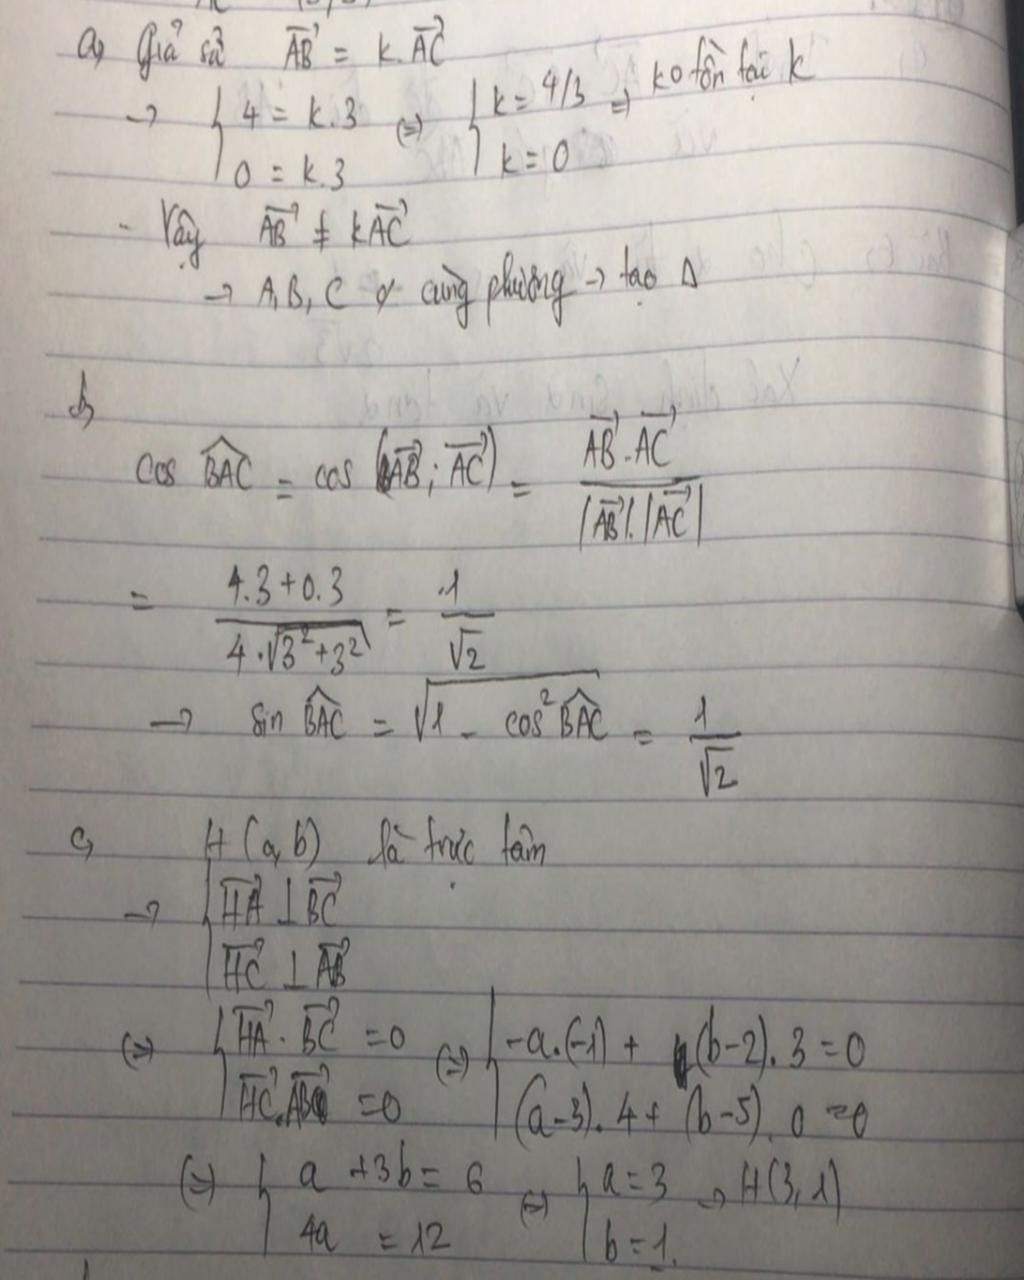 a, Giả sử $\overrightarrow{AB} = k.\overrightarrow{AC}$
→ { 4 = k.3 (=) { k = 4/3 => ko tồn tại k
0 = k.3 k = 0
- Vậy $\overrightarrow{AB} \neq k\overrightarrow{AC}$
→ A, B, C cùng phương → tạo Δ
b,
$\cos \widehat{BAC} = \cos (\overrightarrow{AB}; \overrightarrow{AC}) = \frac{\overrightarrow{AB}.\overrightarrow{AC}}{|\overrightarrow{AB}|.|\overrightarrow{AC}|}$
$= \frac{4.3+0.3}{4.\sqrt{3^2+3^2}} = \frac{1}{\sqrt{2}}$
→ $\sin \widehat{BAC} = \sqrt{1 - \cos^2 \widehat{BAC}} = \frac{1}{\sqrt{2}}$
c, H(a, b) là trực tâm
→ { $\overrightarrow{HA} \perp \overrightarrow{BC}$
$\overrightarrow{HC} \perp \overrightarrow{AB}$
(=) { $\overrightarrow{HA}.\overrightarrow{BC} = 0$ (=) { -a.(-1) + (b-2).3 = 0
$\overrightarrow{HC}.\overrightarrow{AB} = 0$ (a-3).4 + (b-5).0 = 0
(=) { a + 3b = 6 (=) { a = 3 → H(3, 1)
4a = 12 b = 1.